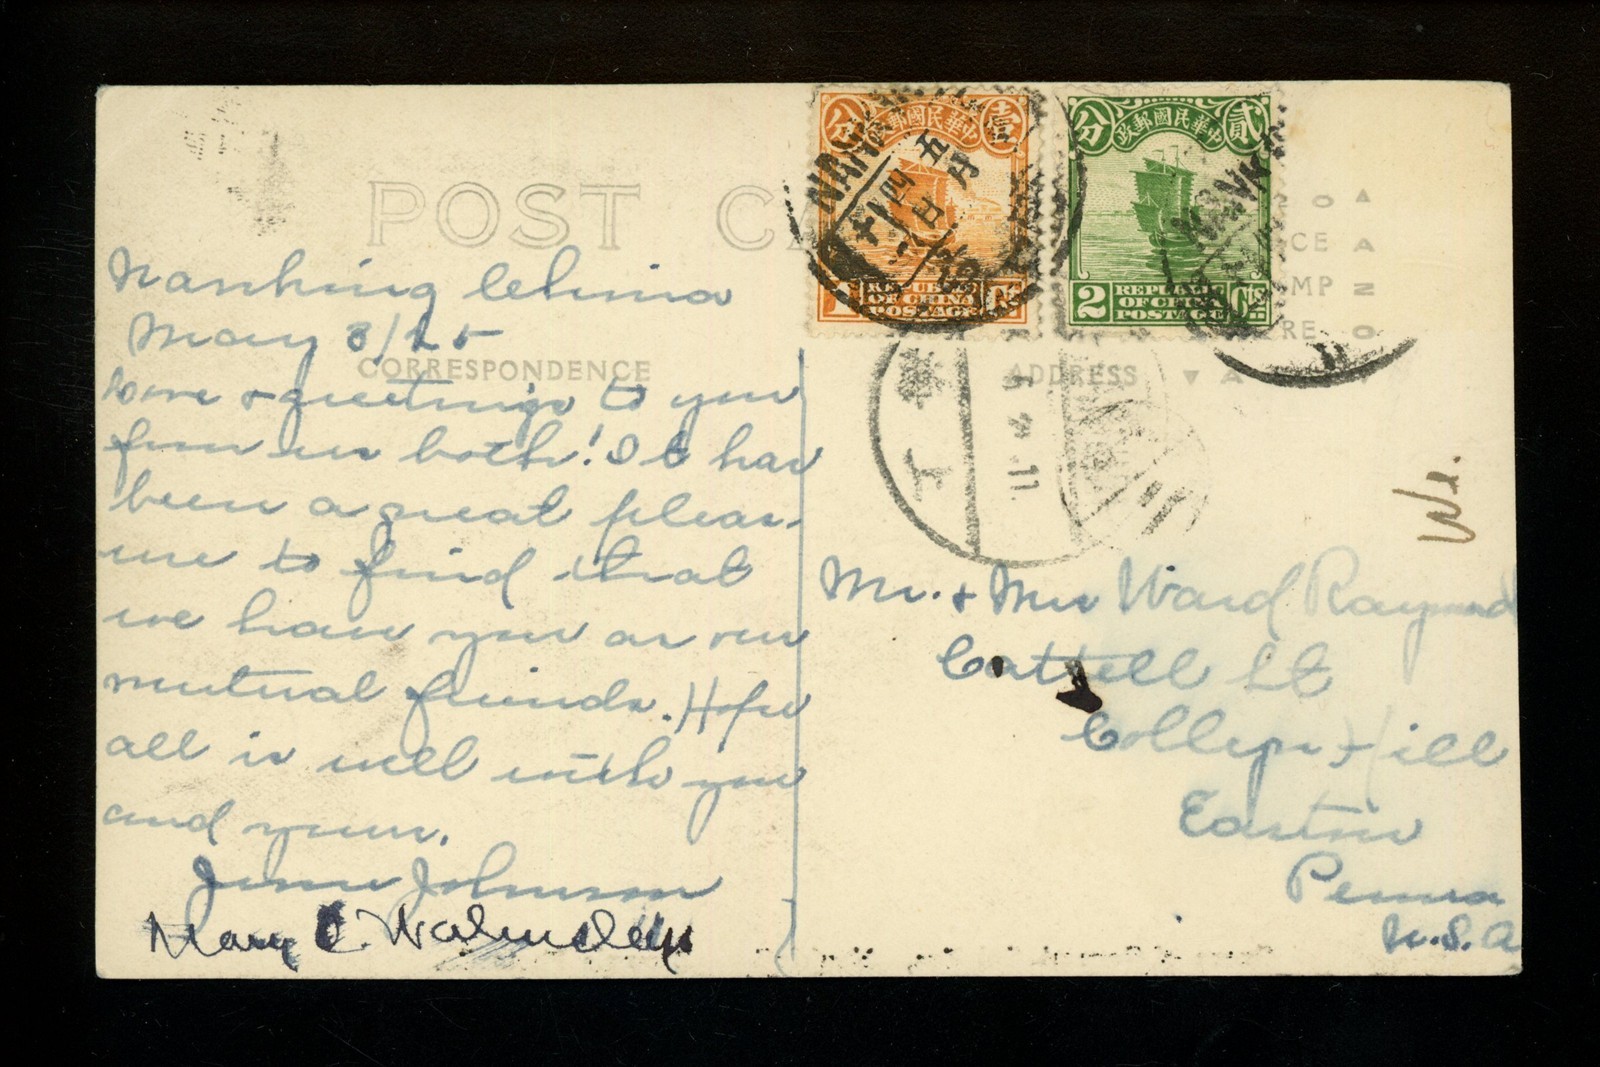 POST CA
CORRESPONDENCE
Nanking China
May 3/25
Love & greetings to you
from us both! It has
been a great pleas-
ure to find that
we have you as our
mutual friends. Hope
all is well with you
and yours.
Johnson
Mary C.
分 中華民國郵政 壹
1 REPUBLIC OF CHINA POSTAGE
分 中華民國郵政 貳
2 REPUBLIC
OF CHINA
POSTAGE
NANK
五月
四日
NANK
MP
ADDRESS
11
We.
Mr. & Mrs Ward Raymond
Cattell St
College Hill
Easton
Penna
U.S.A